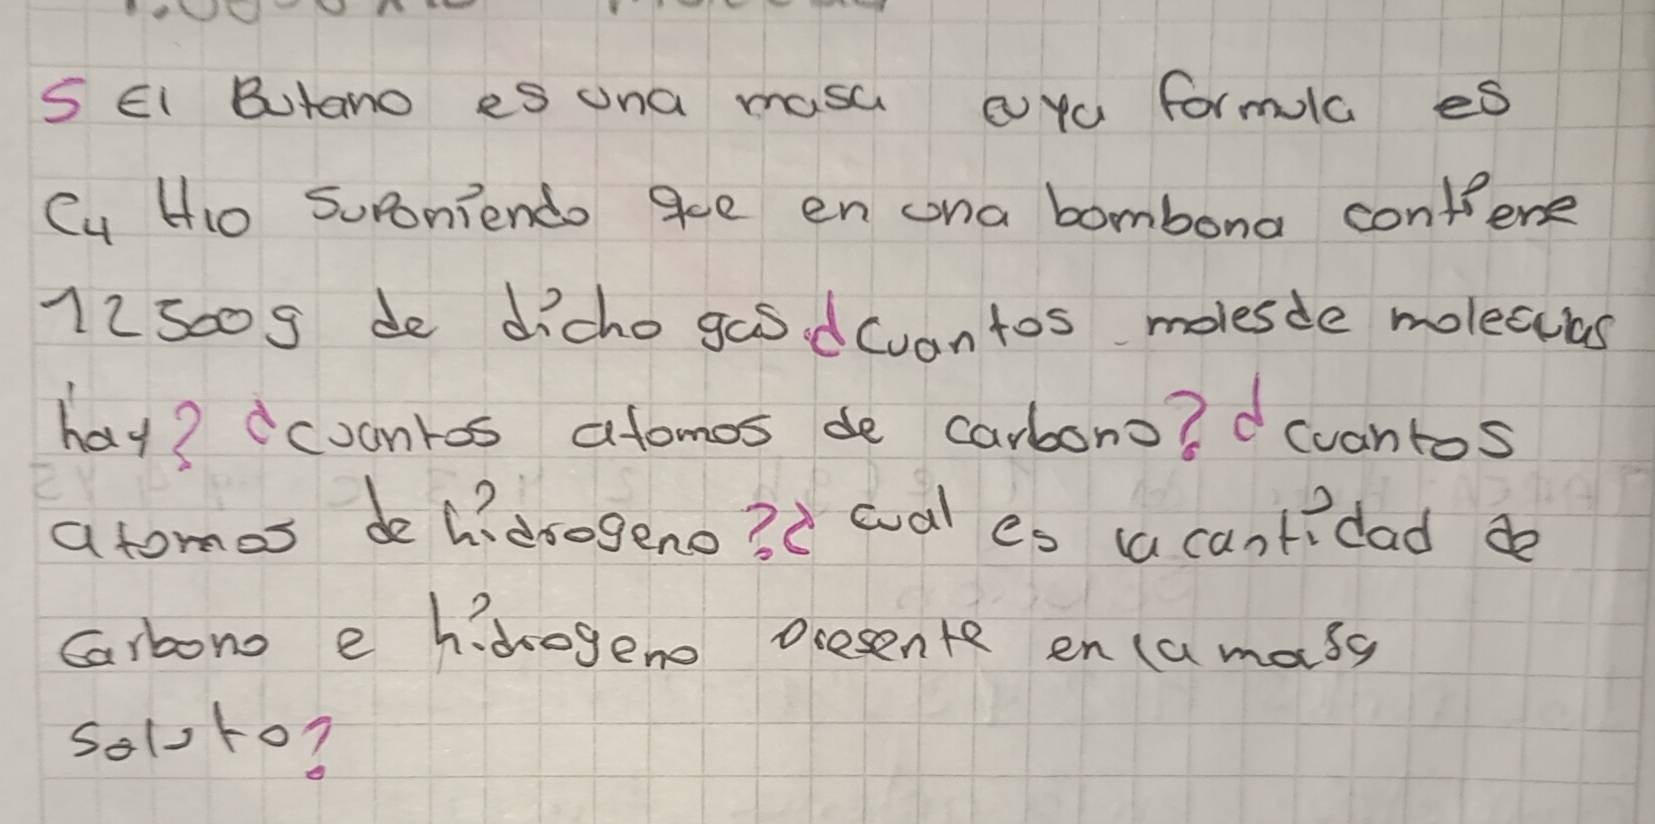 5 El Butano es una masa cuya formula es
C4 H10 Suponiendo que en una bombona contiene
12500g de dicho gas ¿Cuantos moles de moleculas
hay? ¿cuantos atomos de carbono? ¿cuantos
atomos de hidrogeno? ¿cual es la cantidad de
Carbono e hidrogeno presente en la masa
soluto?